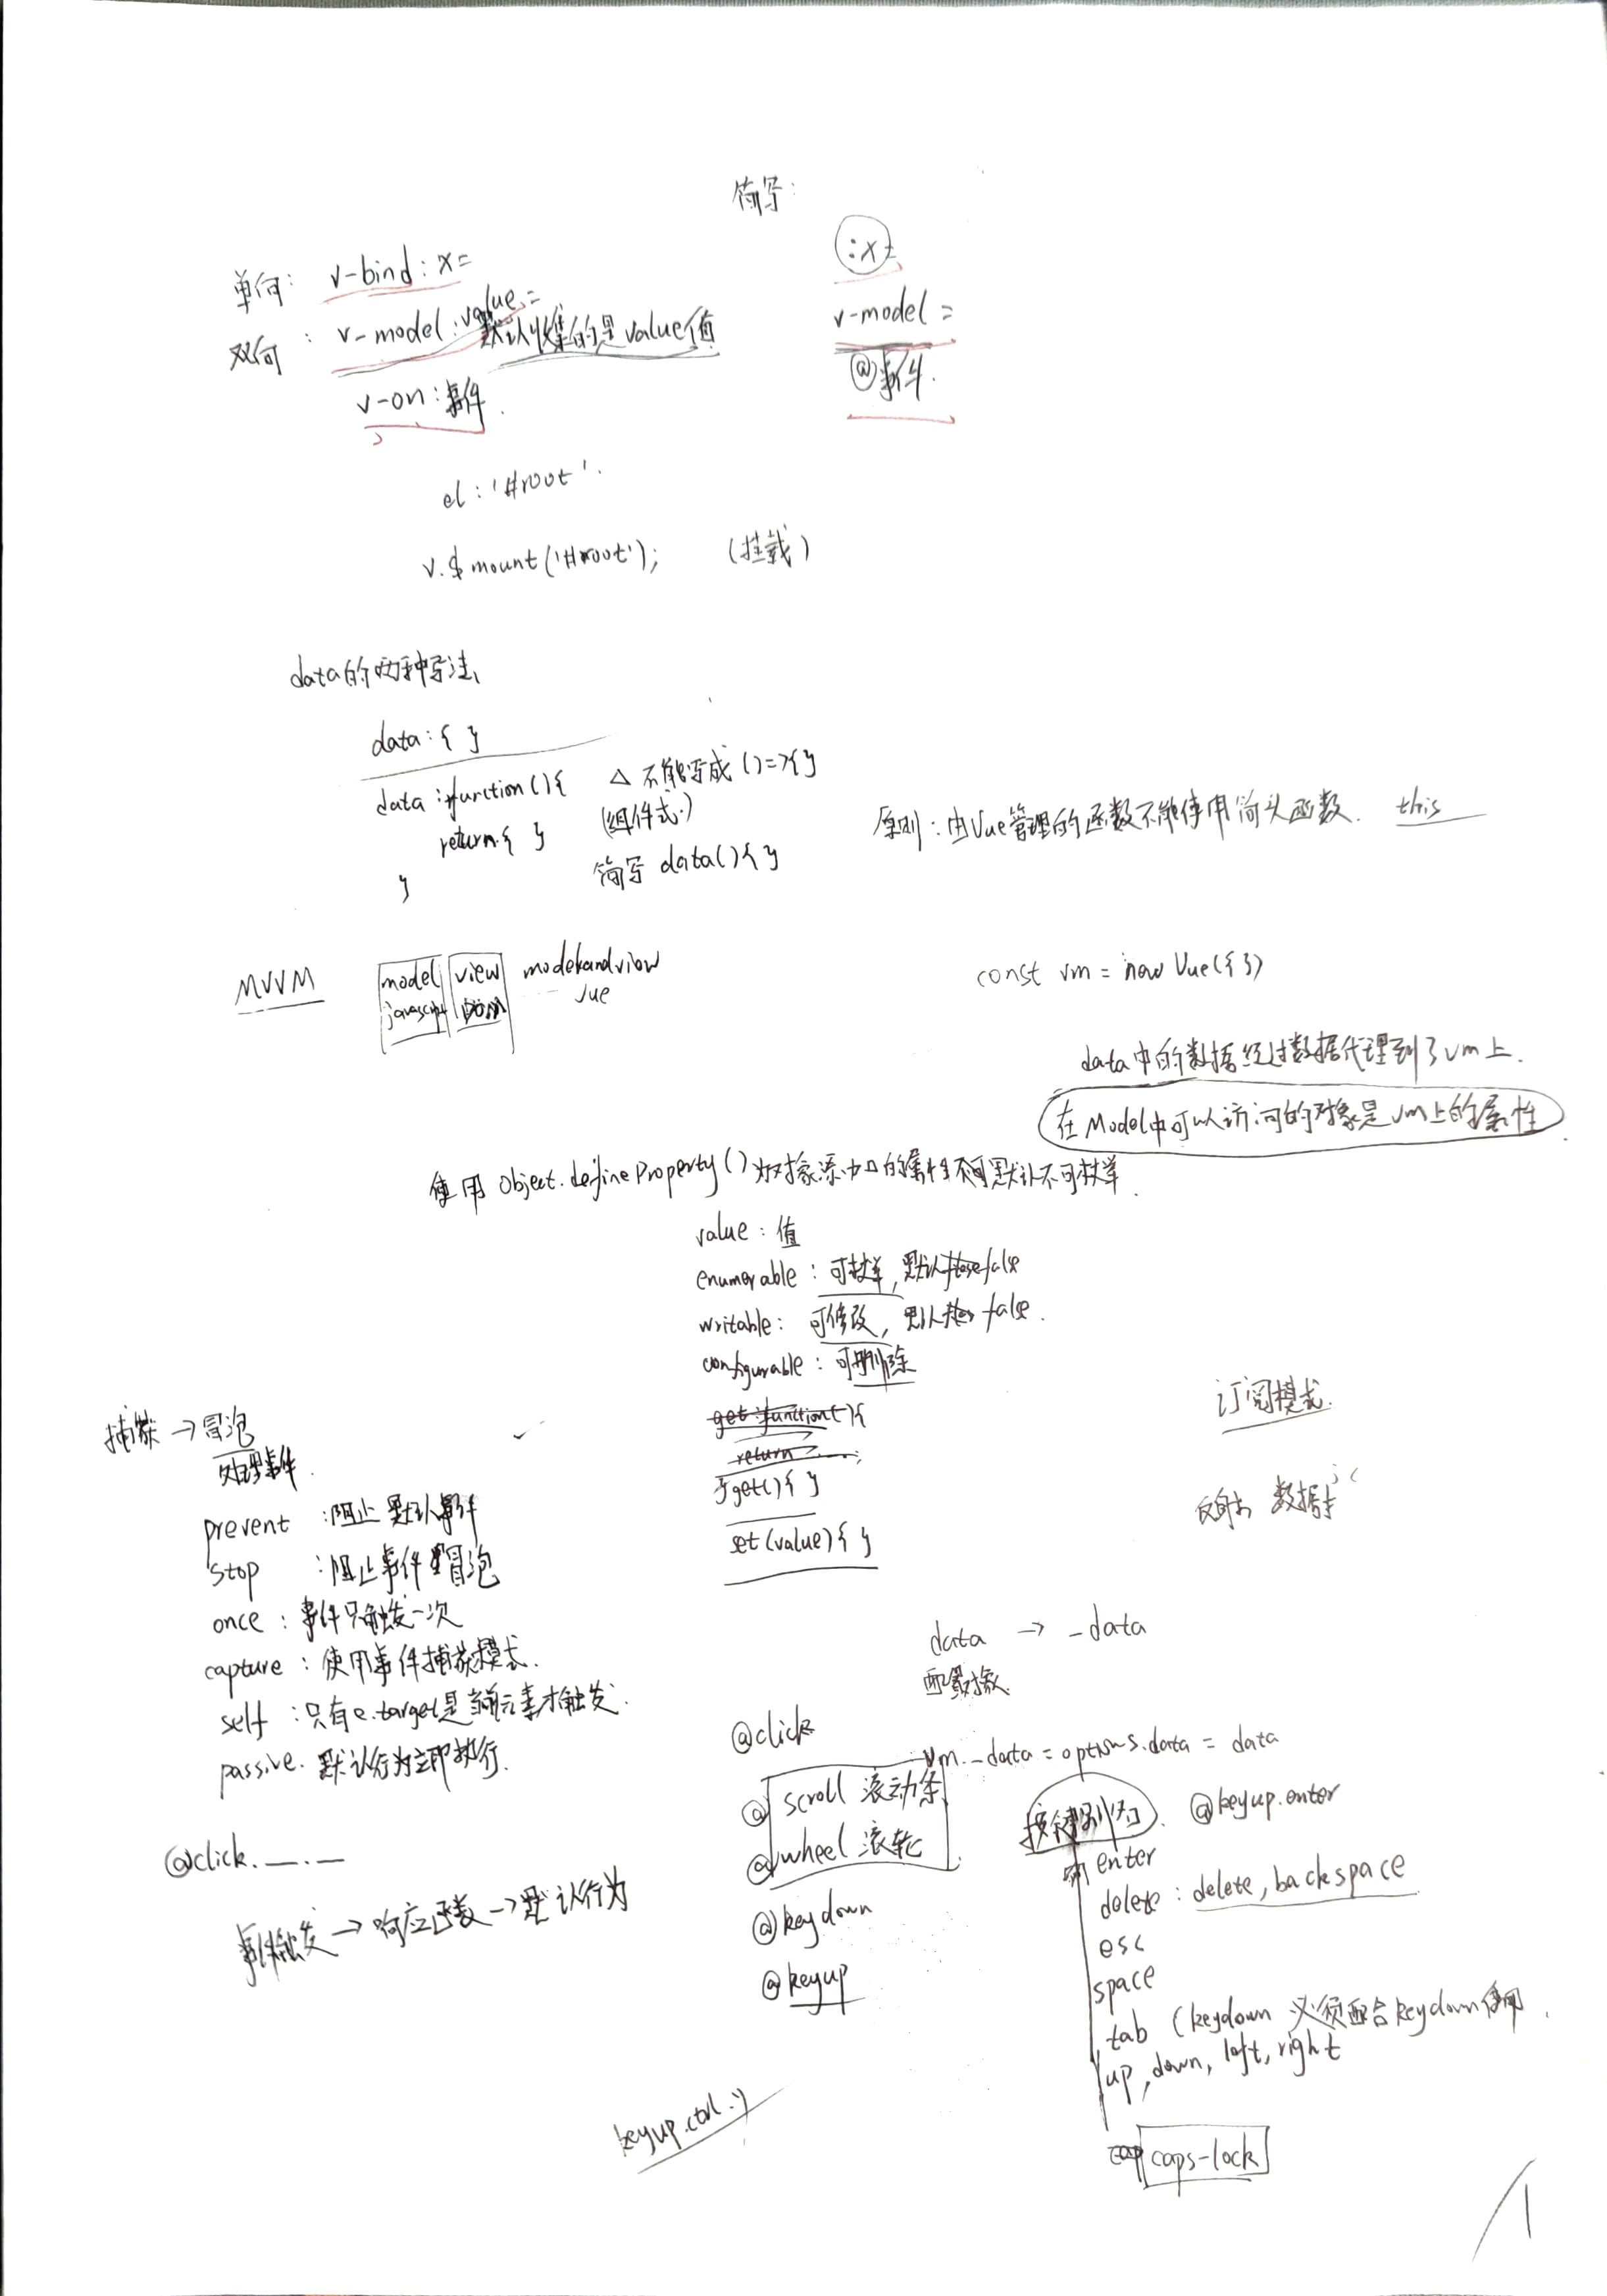 简写：
单向：v-bind：x=
:x=
双向：v-model：value=
默认收集的是value值
v-model =
v-on：事件.
@事件.
el：'#root'.
v.$mount('#root');  (挂载)
data的两种写法
data：{ }
data：function(){
return { }
}
△ 不能写成 ()=>{}
(组件式)
简写 data(){ }
原则：由Vue管理的函数不能使用箭头函数. this
MVVM
model view
javascript DOM
Vue
const vm = new Vue({ })
data中的数据经过数据代理到了vm上.
在Model中可以访问的对象是vm上的属性
使用 Object.defineProperty() 为对象添加的属性默认不可枚举.
value：值
enumerable：可枚举, 默认false
writable：可修改, 默认false.
configurable：可删除
get：function(){
return ......;
}get(){ }
set(value){ }
订阅模式.
反射 数据
捕获 → 冒泡
处理事件.
prevent：阻止默认事件
stop：阻止事件冒泡
once：事件只触发一次
capture：使用事件捕获模式.
self：只有e.target是当前元素才触发.
passive. 默认行为立即执行.
@click.__.__
事件触发 → 响应函数 → 默认行为
data → _data
配置对象
vm._data = options.data = data
@click
@scroll 滚动条
@wheel 滚轮
@keydown
@keyup
按键别名. @keyup.enter
enter
delete：delete, backspace
esc
space
tab (keydown 必须配合keydown使用.
up, down, left, right
caps-lock
keyup.ctrl.y
1